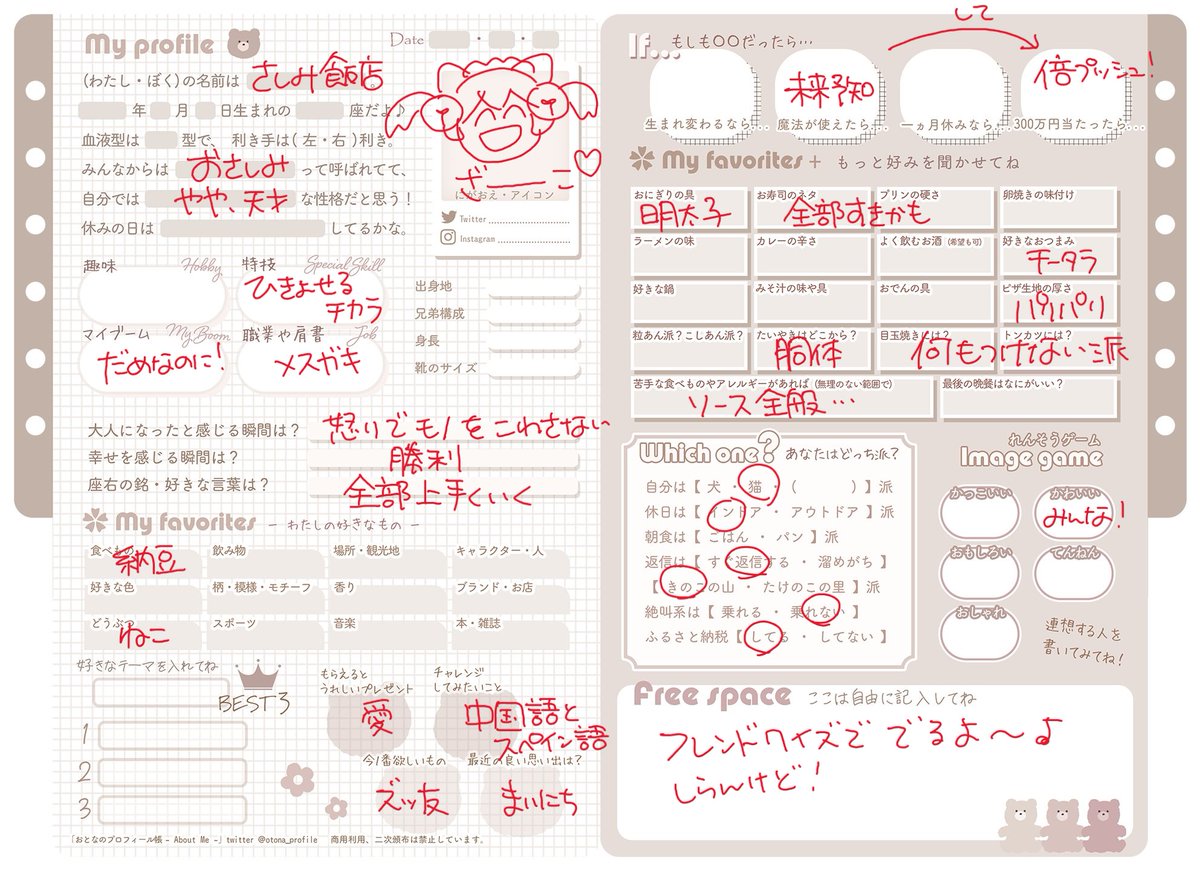 My profile
Date ・ ・
(わたし・ぼく)の名前は さしみ飯店。
年 月 日生まれの 座だよ♪
血液型は 型で、 利き手は( 左・右 )利き。
みんなからは おさしみ って呼ばれてて、
自分では やや、天才 な性格だと思う!
休みの日は してるかな。
ざーーこ♡
にがおえ・アイコン
Twitter
Instagram
趣味 Hobby
特技 Special Skill
ひきよせるチカラ
マイブーム My Boom
だめなのに!
職業や肩書 Job
メスガキ
出身地
兄弟構成
身長
靴のサイズ
大人になったと感じる瞬間は? 怒りでモノをこわさない
幸せを感じる瞬間は? 勝利
座右の銘・好きな言葉は? 全部上手くいく
My favorites - わたしの好きなもの -
食べもの 納豆
飲み物
場所・観光地
キャラクター・人
好きな色
柄・模様・モチーフ
香り
ブランド・お店
どうぶつ ねこ
スポーツ
音楽
本・雑誌
好きなテーマを入れてね
BEST3
1
2
3
もらえるとうれしいプレゼント
愛
チャレンジしてみたいこと
中国語とスペイン語
今1番欲しいもの
ズッ友
最近の良い思い出は?
まいにち
「おとなのプロフィール帳 - About Me -」twitter @otona_profile 商用利用、二次頒布は禁止しています。
If... もしも〇〇だったら…
して
生まれ変わるなら…
未来予知
魔法が使えたら…
一ヵ月休みなら…
倍プッシュ!
300万円当たったら…
My favorites + もっと好みを聞かせてね
おにぎりの具 明太子
お寿司のネタ 全部すきかも
プリンの硬さ
卵焼きの味付け
ラーメンの味
カレーの辛さ
よく飲むお酒 (希望も可)
好きなおつまみ チータラ
好きな鍋
みそ汁の味や具
おでんの具
ピザ生地の厚さ パリパリ
粒あん派?こしあん派?
たいやきはどこから? 胴体
目玉焼きには? 何もつけない派
トンカツには?
苦手な食べものやアレルギーがあれば (無理のない範囲で)
ソース全般…
最後の晩餐はなにがいい?
Which one? あなたはどっち派?
自分は【 犬 ・ 猫 ・ ( ) 】派
休日は【 インドア ・ アウトドア 】派
朝食は【 ごはん ・ パン 】派
返信は【 すぐ返信する ・ 溜めがち 】
【 きのこの山 ・ たけのこの里 】派
絶叫系は【 乗れる ・ 乗れない 】
ふるさと納税【 してる ・ してない 】
れんそうゲーム
Image game
かっこいい
かわいい みんな!
おもしろい
てんねん
おしゃれ
連想する人を
書いてみてね!
Free space ここは自由に記入してね
フレンドクイズで でるよ〜♪
しらんけど!